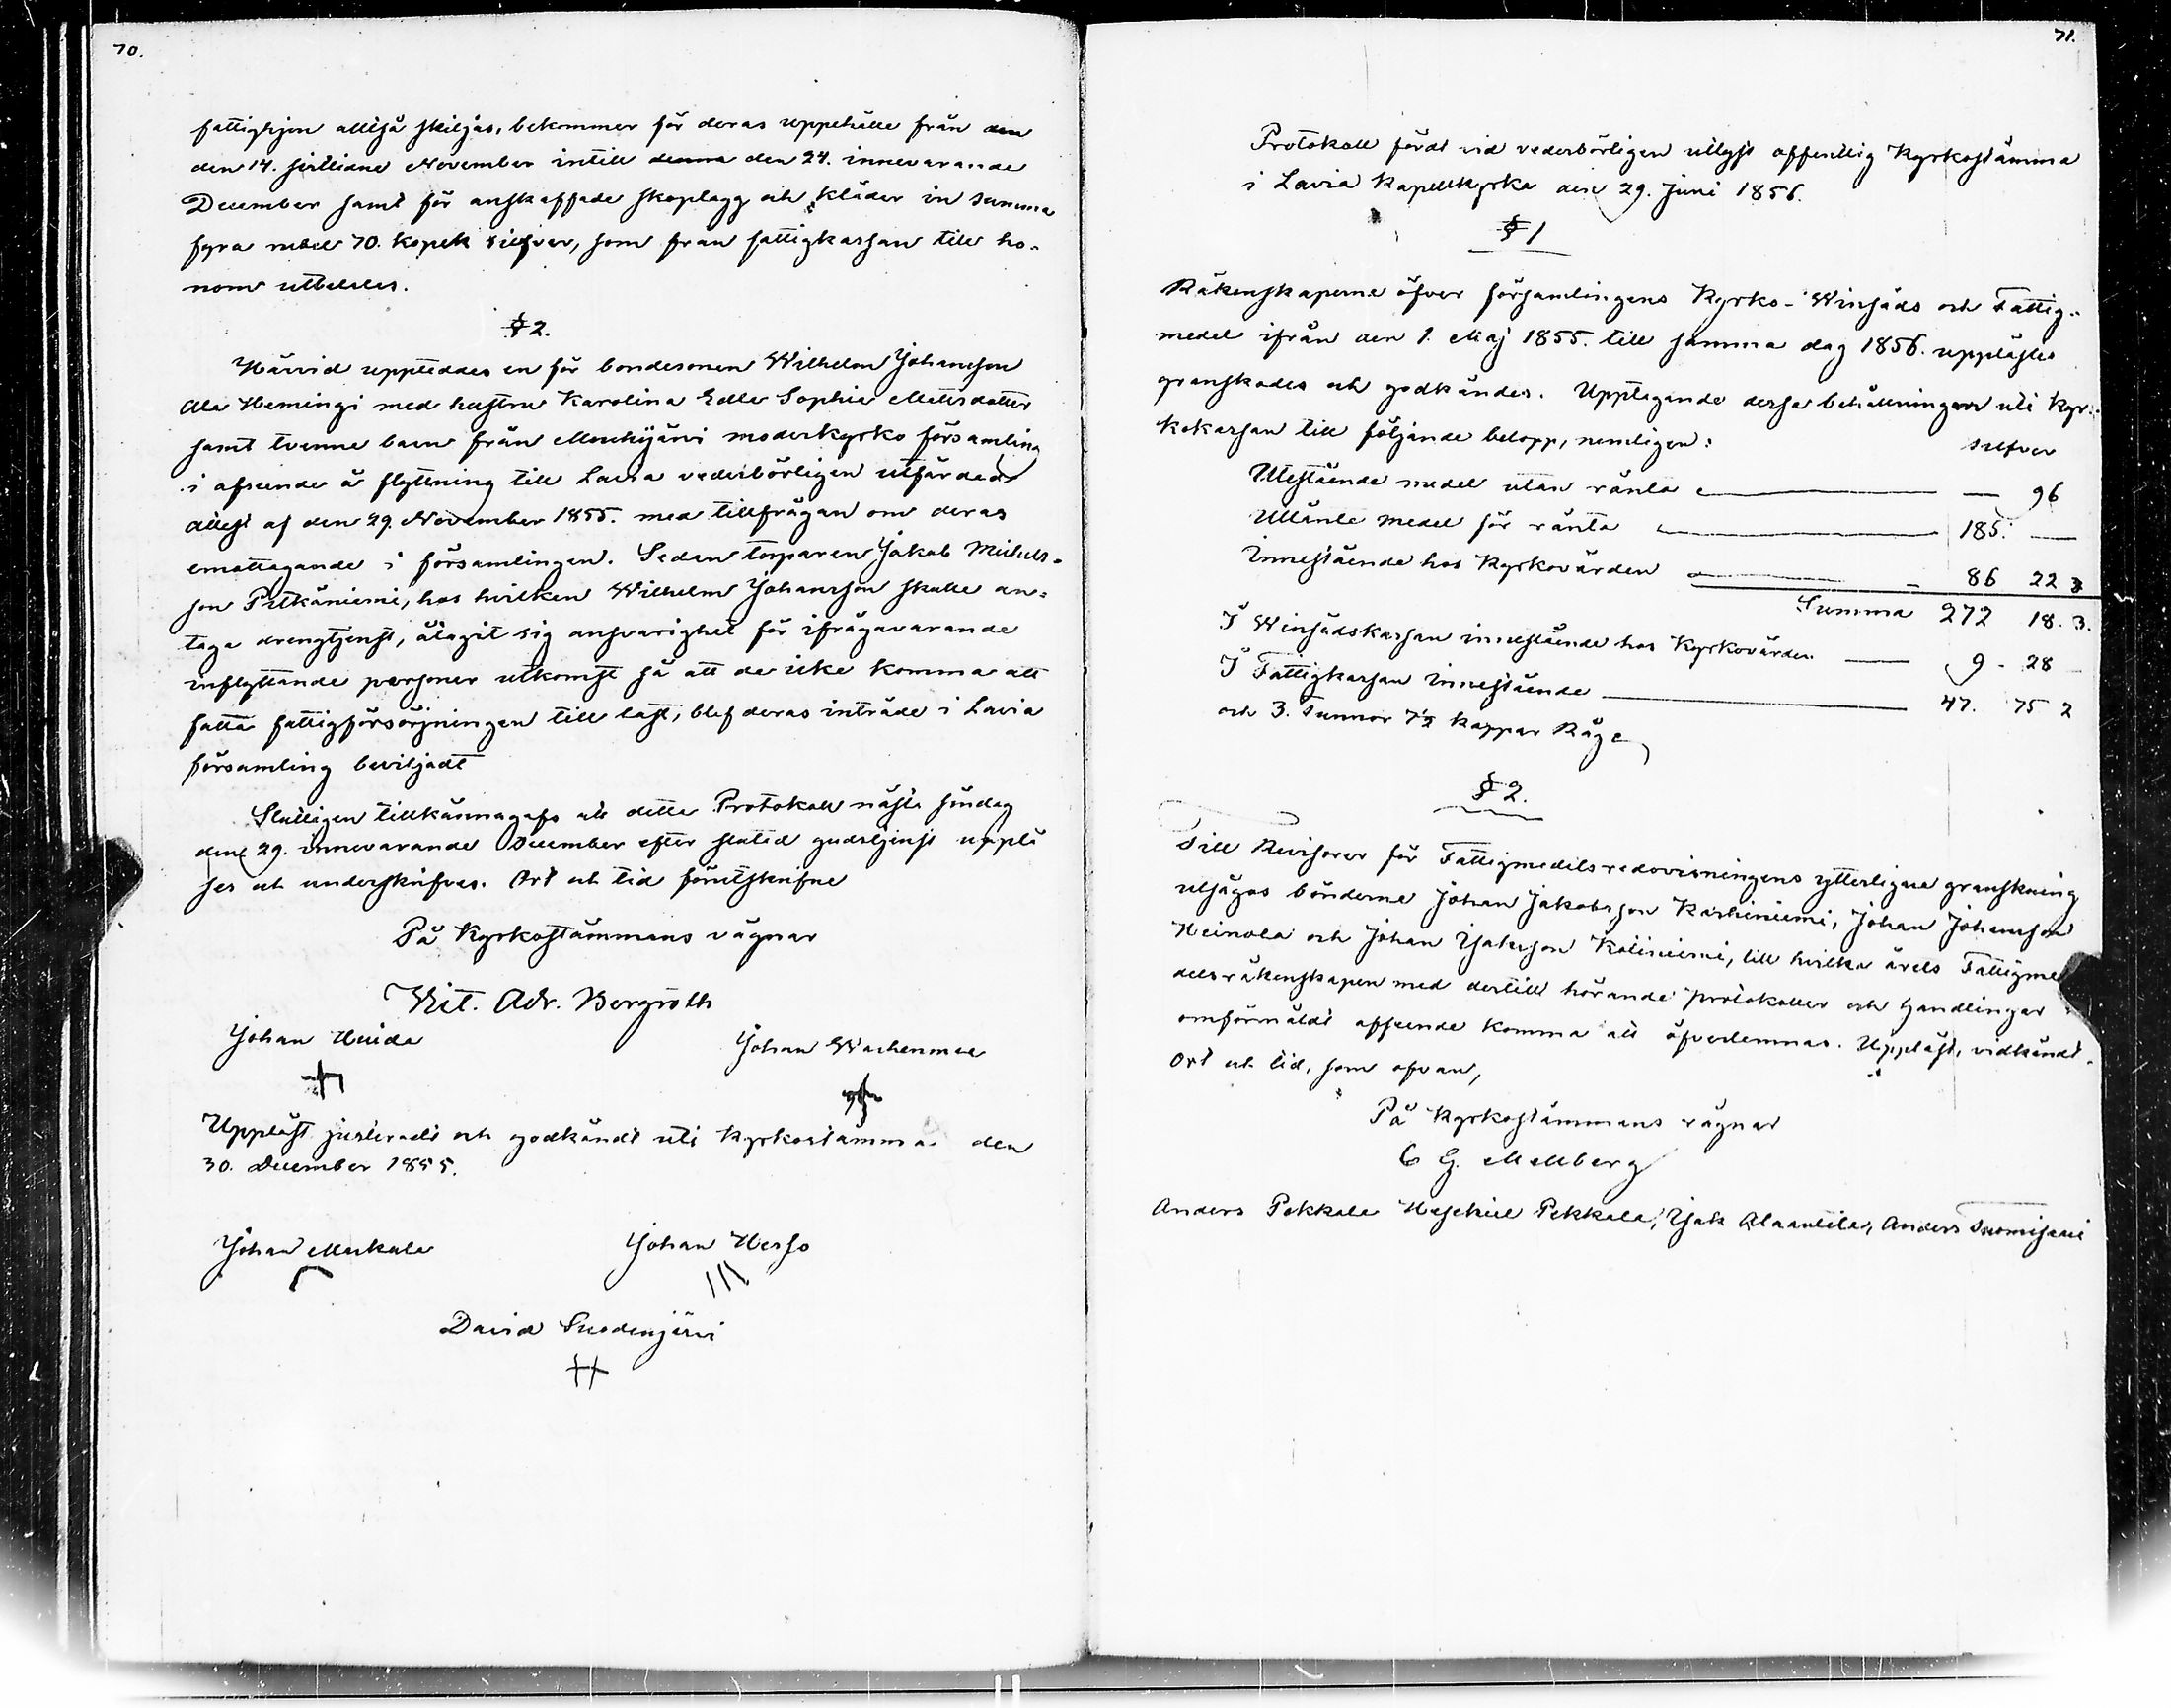 70.
fattighjon alltså skiljas, bekommer för deras uppehälle från den
den 14. sistlidne November intill denna den 24. innevarande
December samt för anskaffade skoplagg och kläder in summa
fyra rubel 70. kopek silfver, som från fattigkassan till ho-
nom utbetales.
§ 2.
Härvid uppteddes en för bondesonen Wilhelm Johansson
Ala Hemingi med hustru Karolina Edla Sophia Mattsdotter
samt tvenne barn från Mouhijärvi moderkyrko församling
i afseende å flyttning till Lavia vederbörligen utfärdad
attest af den 29. November 1855. med tillfrågan om deras
emottagande i församlingen. Sedan torparen Jakob Michels-
son Pitkäniemi, hos hvilken Wilhelm Johansson skulle an-
taga drengtjenst, åtagit sig ansvarighet för ifrågavarande
inflyttande personer utkomst så att de icke komma att
falla fattigförsörjningen till last, blef deras inträde i Lavia
församling beviljadt
Slutligen tillkännagafs att detta Protokoll nästa söndag
den 29. innevarande December efter slutad gudstjenst upplä
ses och underskrifves. Ort och tid förutskrifne
På Kyrkostämmans vägnar
Vit. Adr. Bergroth
Johan Huida
Johan Wachenmaa
Uppläst justeradt och godkändt uti Kyrkostämma den
30. December 1855.
Johan Markula
Johan Herso
David Suodenjärvi
71.
Protokoll fördt vid vederbörligen utlyst offentlig Kyrkostämma
i Lavia Kapellkyrka den 29. Juni 1856.
§ 1
Räkenskaperne öfver församlingens Kyrko- Winsåds och Fattig-
medel ifrån den 1. Maj 1855. till samma dag 1856. upplästes
granskades och godkändes. Upptagande dessa behållningar uti Kyr-
kokassan till följande belopp, nemligen:
silfver
Utestående medel utan ränta — 96
Utlånte medel för ränta 185. —
Innestående hos Kyrkovärden 86 22 3
Summa 272 18. 3.
I Winsådskassan innestående hos Kyrkovärden 9 - 28
I Fattigkassan innestående 47. 75 2
och 3. Tunnor 7½ kappar Råg
§ 2.
Till Revisorer för Fattigmedelsredovisningens ytterligare granskning
utsågos bönderne Johan Jakobsson Karhiniemi, Johan Johansson
Heinola och Johan Isaksson Kotiniemi, till hvilka årets Fattigme
delsräkenskapen med dertill hörande protokoller och handlingar
omförmäldt afseende komma att öfverlemnas. Uppläst, vidkändt.
Ort och tid, som ofvan,
På Kyrkostämmans vägnar
C G. Mellberg
Anders Pekkala Heskiel Pekkala, Isak Alaantila, Anders Tuomisari